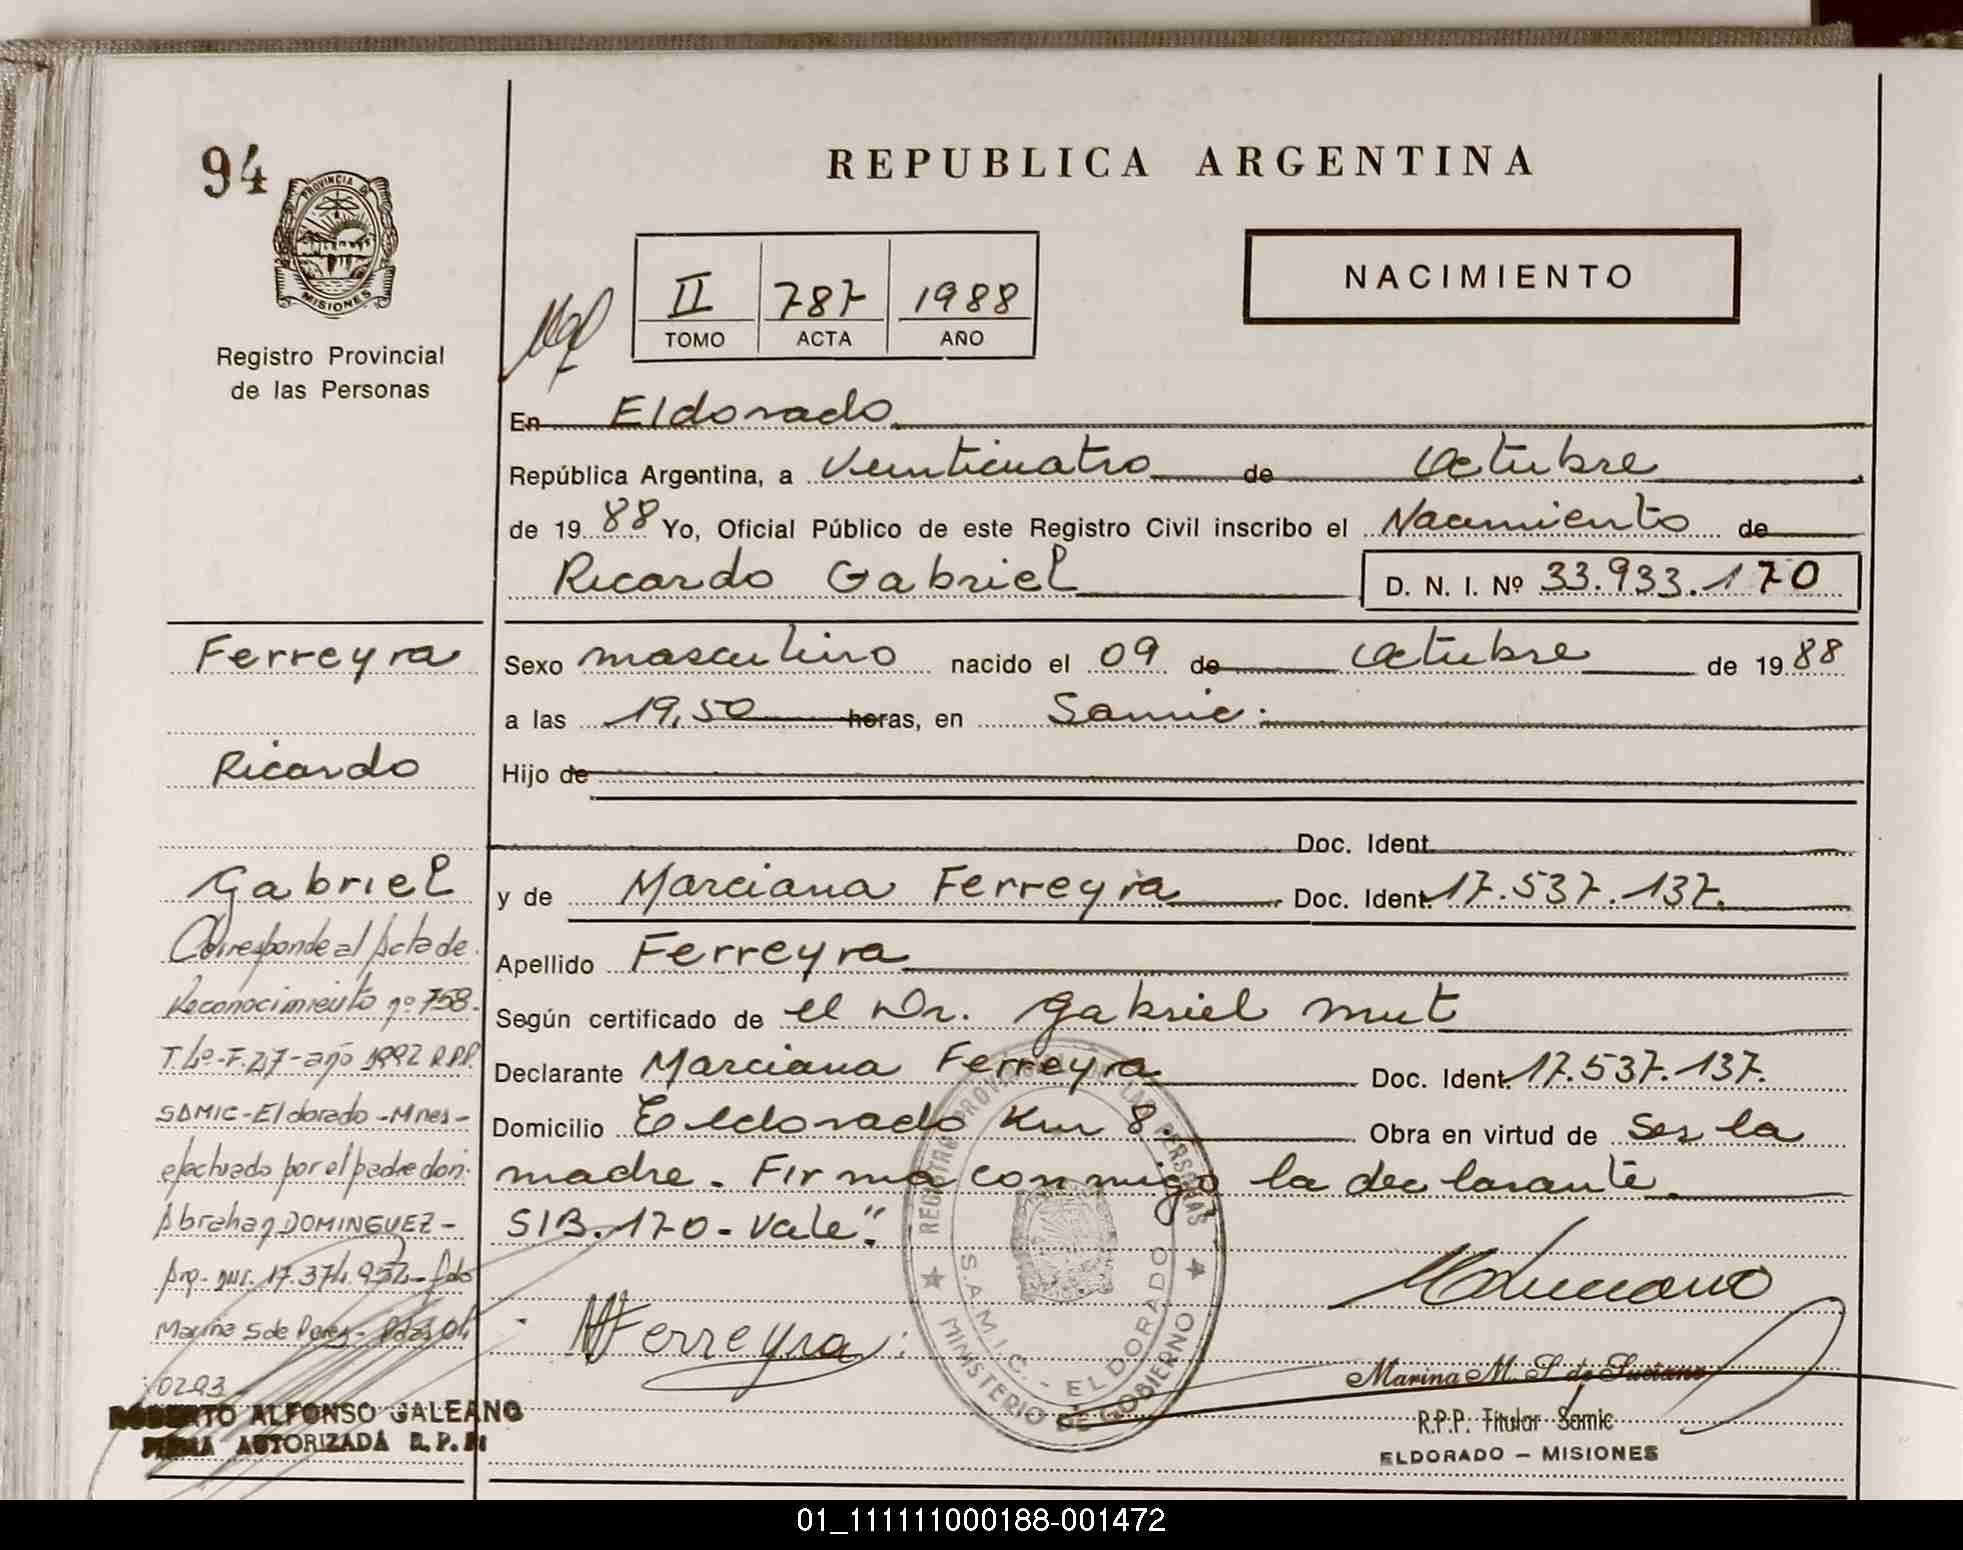 94
PROVINCIA DE
MISIONES
Registro Provincial
de las Personas
REPUBLICA ARGENTINA
II 787 1988
TOMO ACTA AÑO
NACIMIENTO
En Eldorado
República Argentina, a Veinticuatro de Octubre
de 19 88 Yo, Oficial Público de este Registro Civil inscribo el Nacimiento de
Ricardo Gabriel D. N. I. Nº 33.933.170
Sexo masculino nacido el 09 de Octubre de 19 88
a las 19,50 horas, en Samic.
Hijo de
Doc. Ident.
y de Marciana Ferreyra Doc. Ident. 17.537.137.
Apellido Ferreyra
Según certificado de el Dr. Gabriel Mut
Declarante Marciana Ferreyra Doc. Ident. 17.537.137.
Domicilio Eldorado Km 8. Obra en virtud de Ser la
madre. Firma conmigo la declarante.
S/B. 170 - Vale".
MFerreyra
REGISTRO PROVINCIAL DE LAS PERSONAS
S.A.M.I.C. - ELDORADO
MINISTERIO DE GOBIERNO
Marina M. S. de Luciano
R.P.P. Titular Samic
ELDORADO – MISIONES
Ferreyra
Ricardo
Gabriel
Corresponde al Acta de
Reconocimiento nº 758.
T. 4º-F. 47-año 1992 R.P.P.
SAMIC-Eldorado-Mnes-
efectuado por el padre don
Abrahan DOMINGUEZ-
Arg. 17.374.952-fdo
Marina S de Perez-
0293
ROBERTO ALFONSO GALEANO
FIRMA AUTORIZADA R. P. P.
01_111111000188-001472